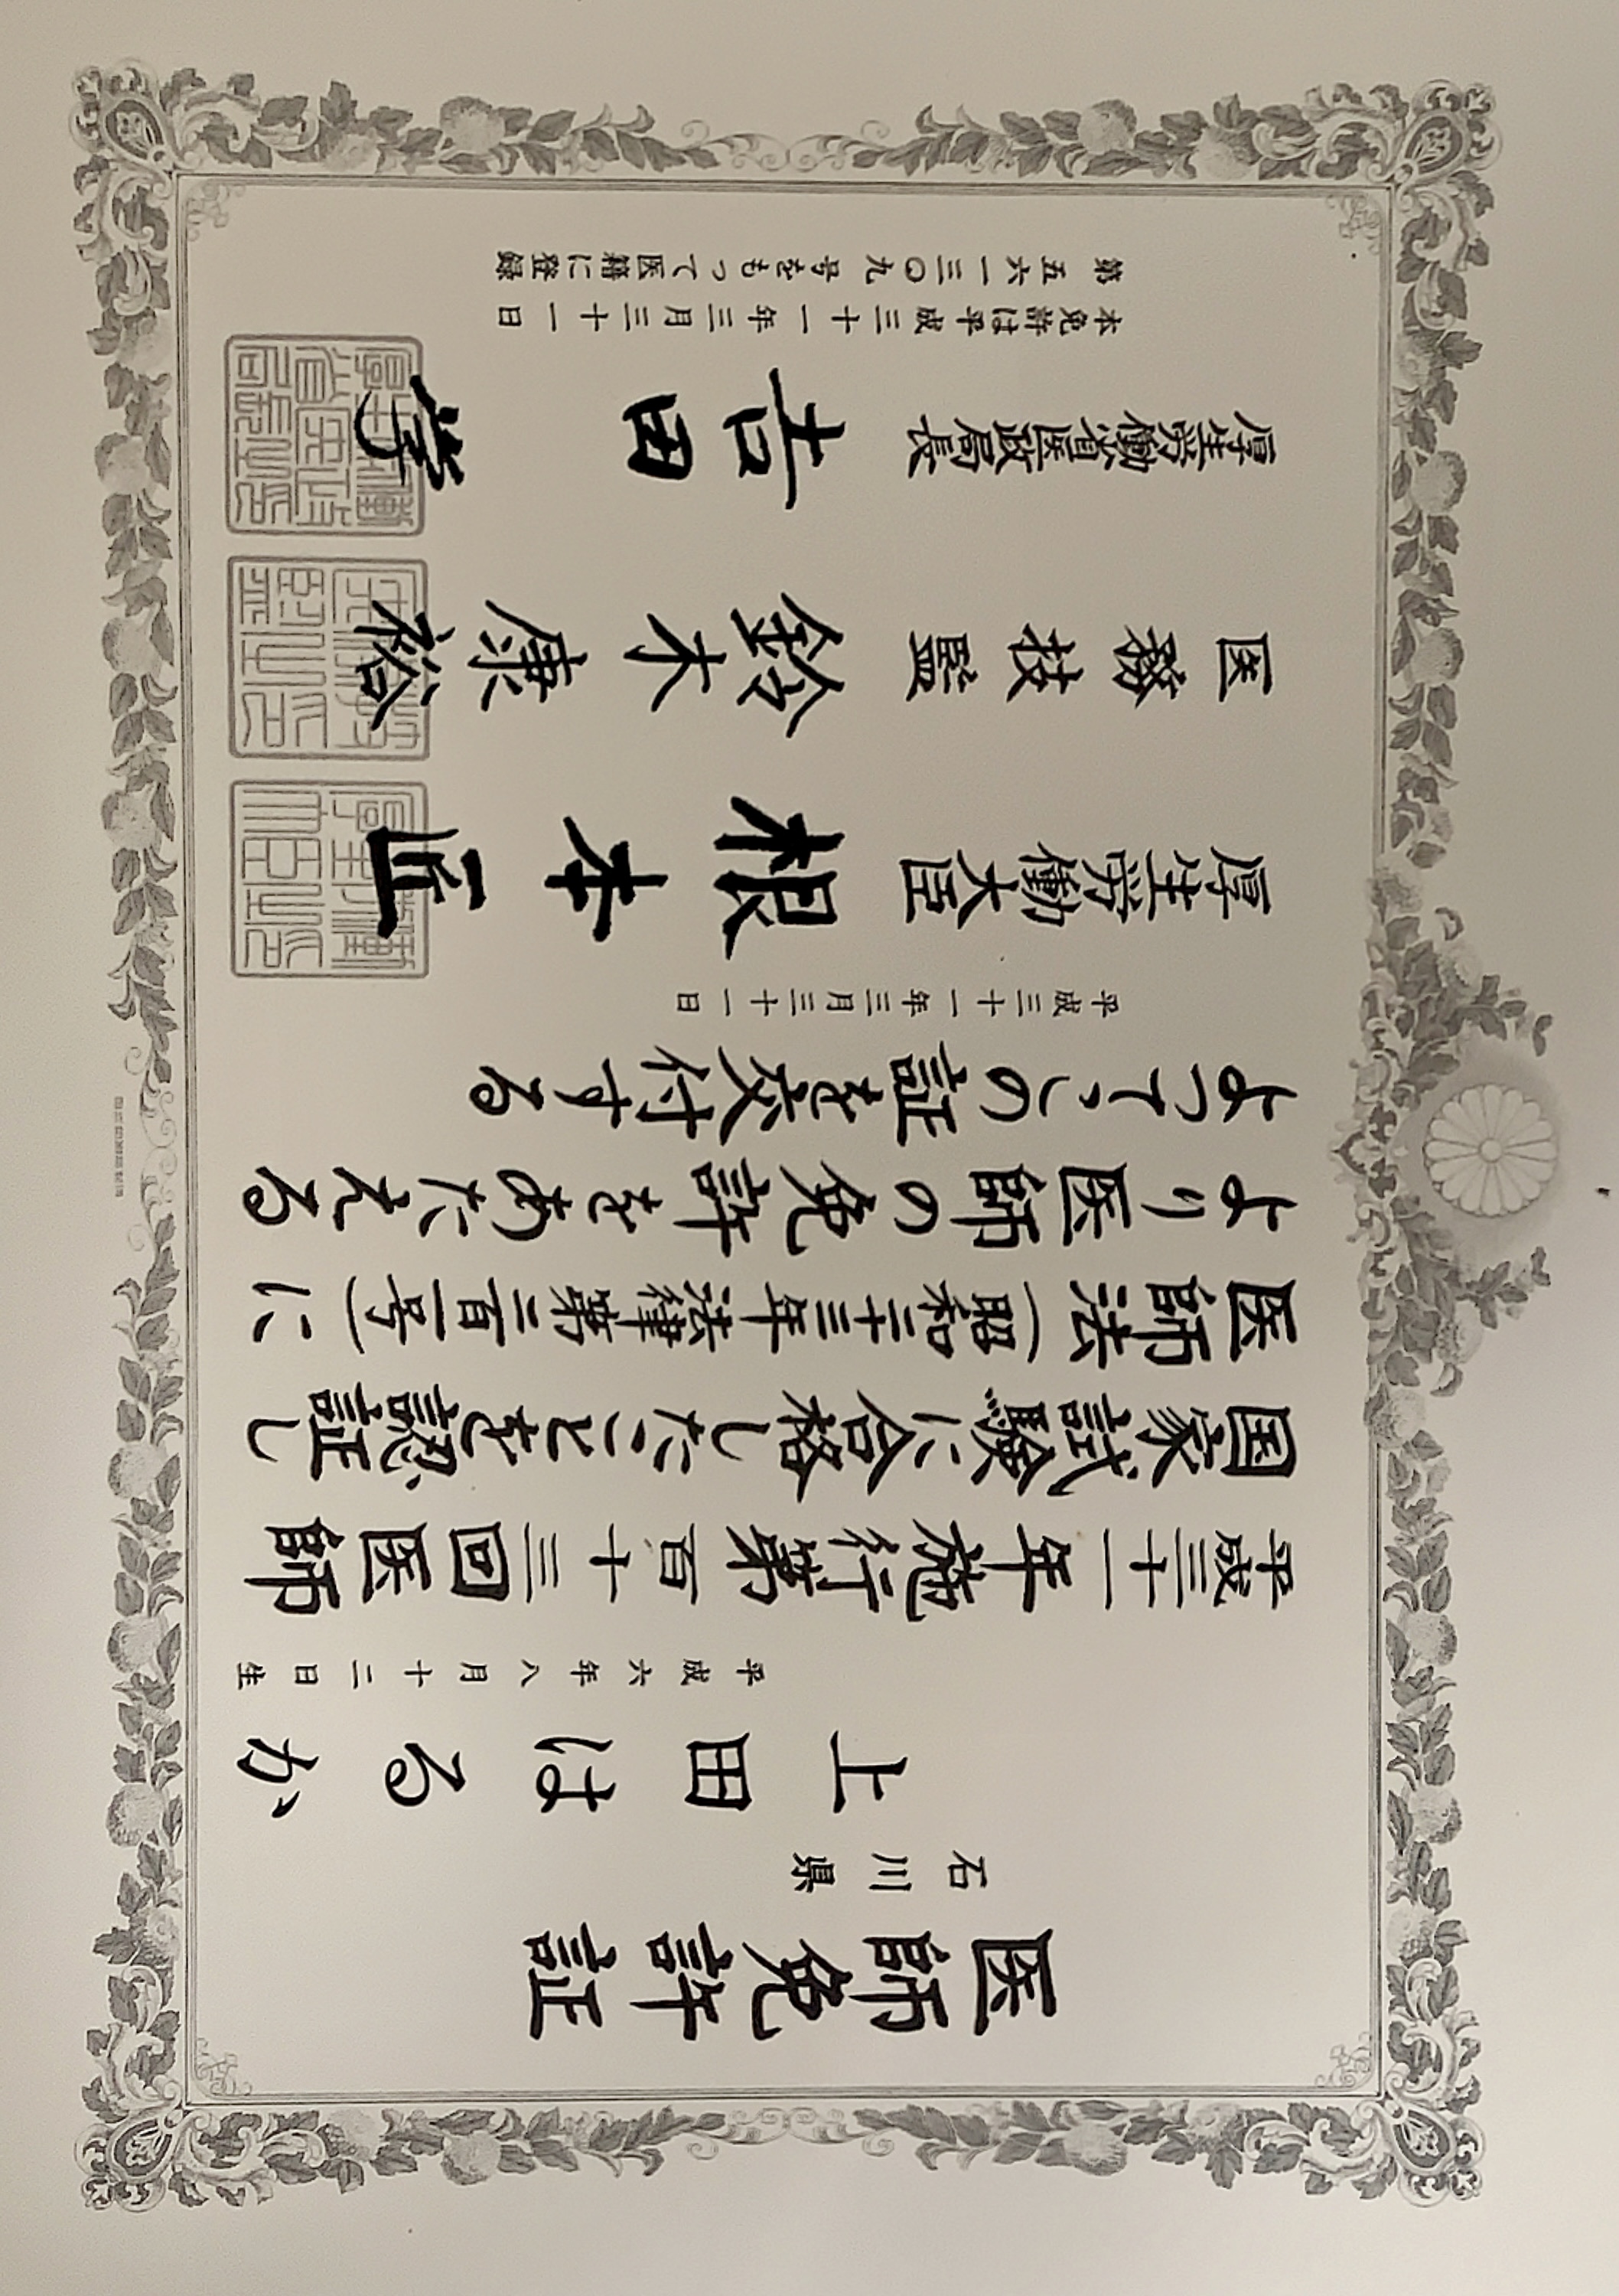 医師免許証
石川県
上田はるか
平成六年八月十二日生
平成三十一年施行第百十三回医師
国家試験に合格したことを認証し
医師法(昭和二十三年法律第二百一号)に
より医師の免許をあたえる
よって、この証を交付する
平成三十一年三月三十一日
厚生労働大臣 根本匠
医務技監 鈴木康裕
厚生労働省医政局長 吉田学
本免許は平成三十一年三月三十一日
第五六一三〇九号をもって医籍に登録